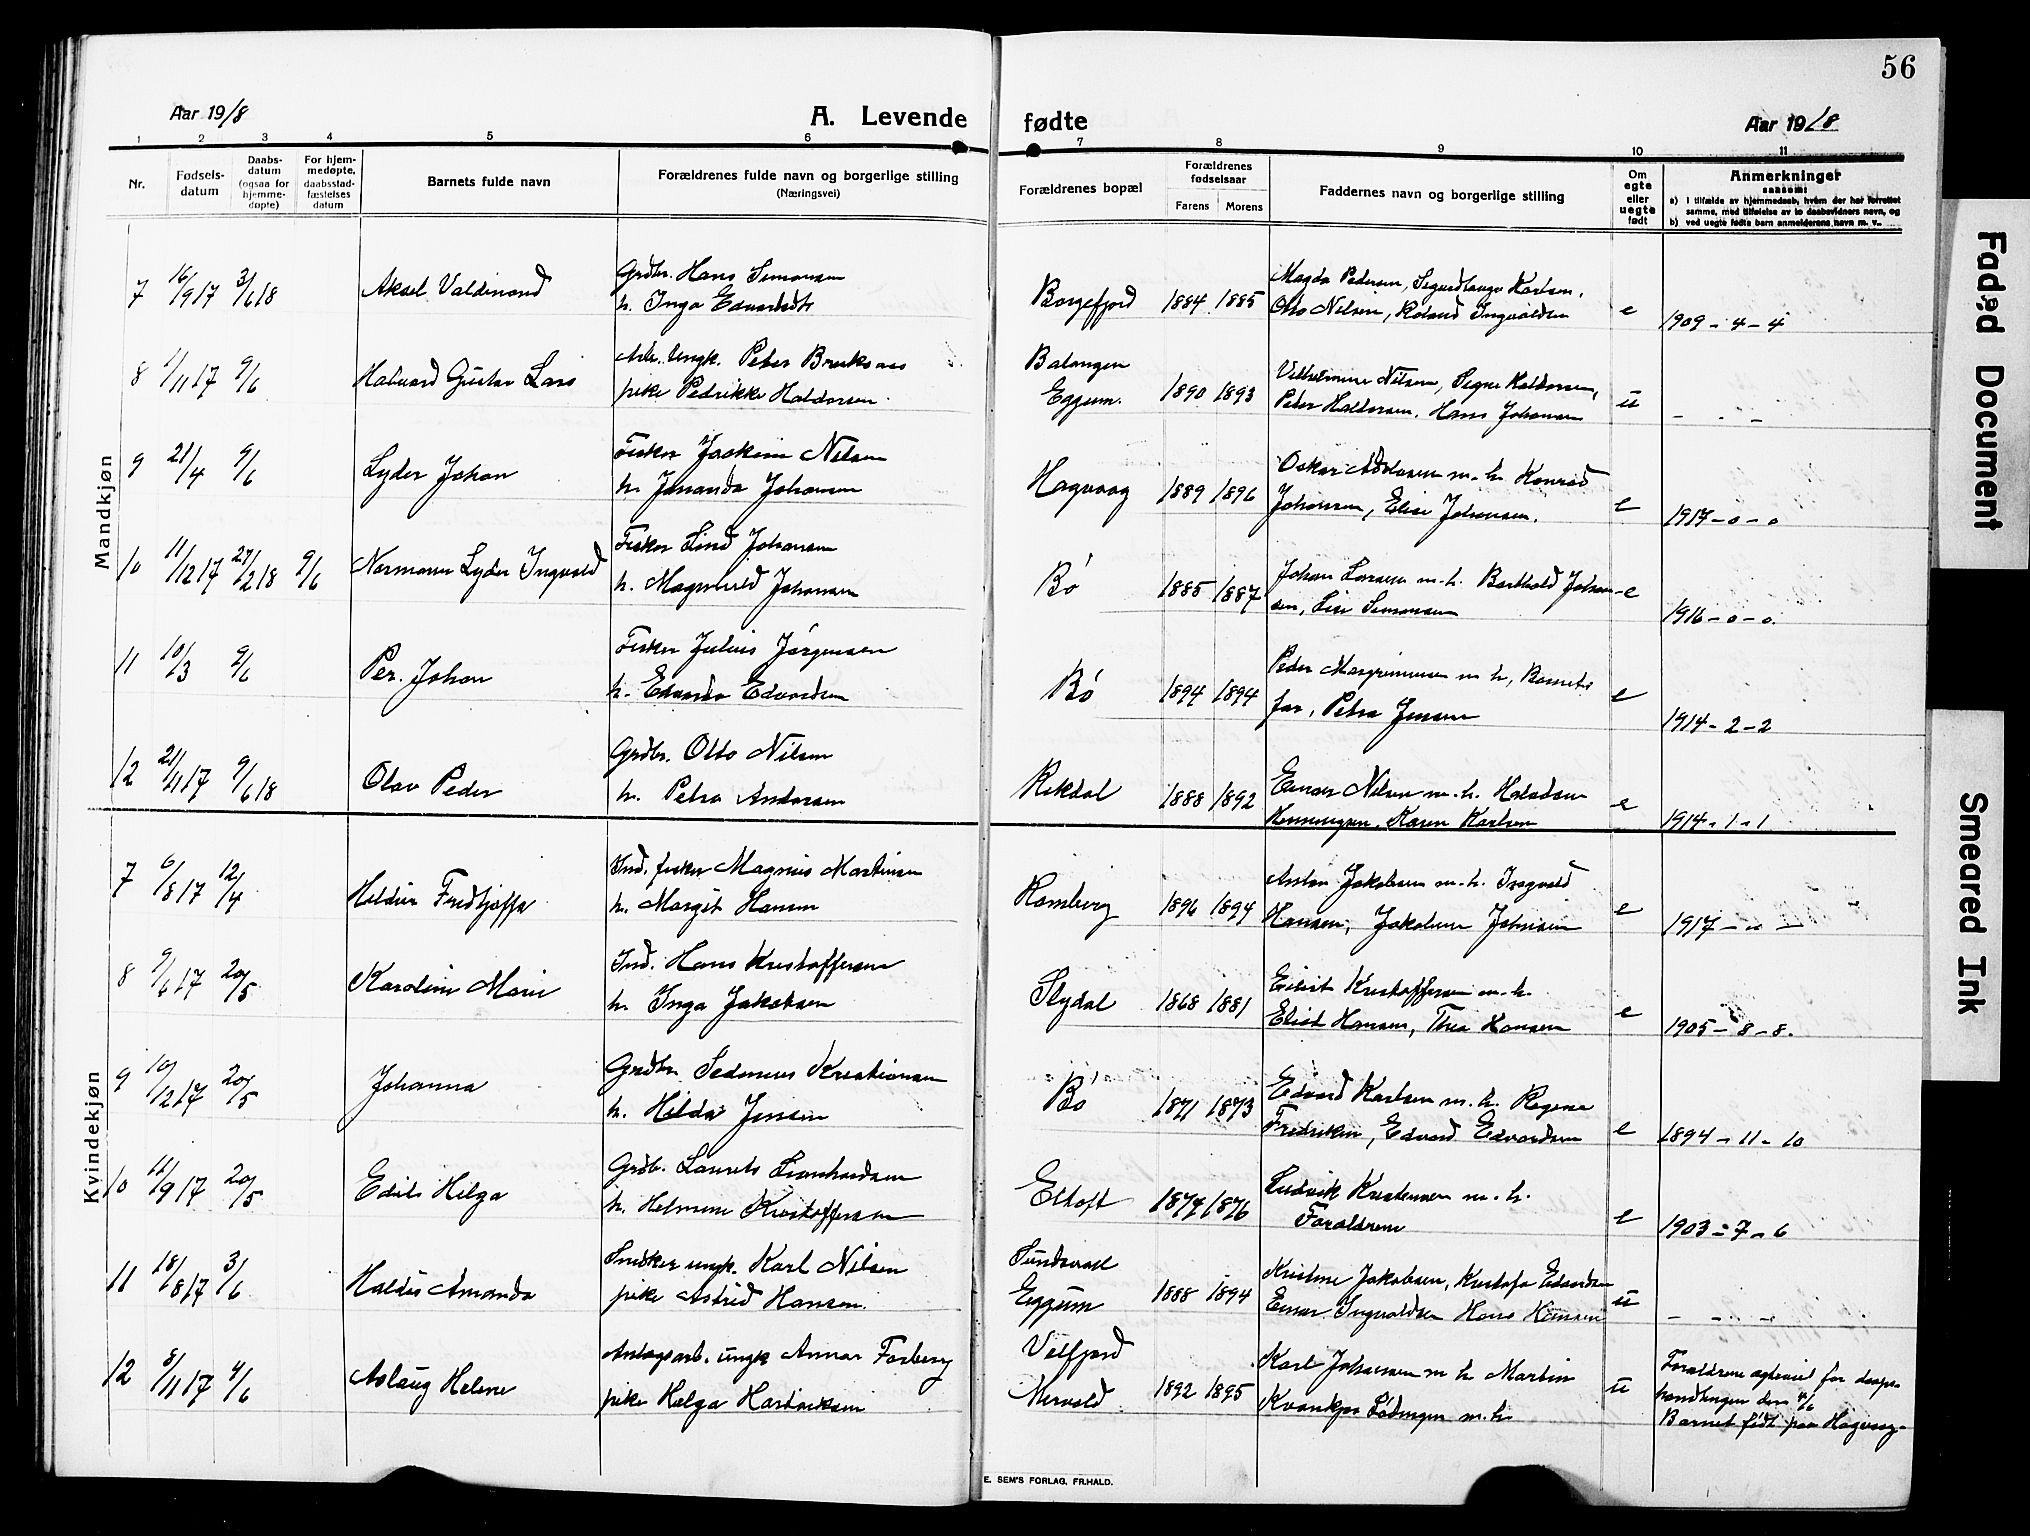 56
Aar 1918
A. Levende
fødte
Aar 1918
1 2 3 4 5 6 7 8 9 10 11
Nr.
Fødsels-
datum
Daabs-
datum
(ogsaa for
hjemme-
døpte)
For hjem-
medøpte,
daabsstad-
fæstelses
datum
Barnets fulde navn
Forældrenes fulde navn og borgerlige stilling
(Næringsvei)
Forældrenes bopæl
Forældrenes
fødselsaar
Farens Morens
Faddernes navn og borgerlige stilling
Om
egte
eller
uegte
født
Anmerkninger
saasom:
a) i tilfælde av hjemmedaab, hvem der har forrettet
samme, med tilføielse av to daabsvidners navn, og
b) ved uegte fødte barn anmelderens navn m. v.
Mandkjøn
7 16/9 17 3/6 18 Aksel Valdimand
Grdbr. Hans Simonsen
h. Inga
Borgefjord 1884 1885
Magda Pedersen, Karlsen,
Otto Nilsen, Roland Ingvaldsen
e
1909 - 4 - 4
8 1/11 17 9/6 Halvard Gustav Lars
Arb. Ungk. Peder
pike Pedrikke Haldorsen
Balangen
Eggum. 1890 1893
Vilhelmine Nilsen, Signe Haldorsen,
Peder Haldorsen, Hans Johansen
u
- - -
9 21/4 9/6 Lyder Johan
Fisker Joakim Nilsen
h. Johansen
Hagvaag 1889 1896
Oskar m. h. Konrad
Johansen, Elise Johansen.
e
1917 - 0 - 0
10 11/12 17 27/2 18 9/6 Normann Lyder Ingvald
Fisker Johansen
h. Magnhild Johansen
Bø 1885 1887
Johan Larsen m. h. Barthold Johan-
sen, Lise Simonsen
e
1916 - 0 - 0.
11 10/3 9/6 Per. Johan
Fisker Julius Jørgensen
h. Edvarda Edvardsen
Bø 1894 1894
Peder m h, Barnets
far, Petra Jensen
e
1914 - 2 - 2
12 21/11 17 9/6 18 Olav Peder
Grdbr. Otto Nilsen
h. Petra Andersen
Rekdal 1888 1892
Einar Nilsen m. h.
Henningsen, Karen Karlsen
e
1914 - 1 - 1
Kvindekjøn
7 6/8 17 12/4
Ind. fisker Magnus Martinsen
h. Margit Hansen
Ramberg 1896 1894
Anton Jakobsen m. h. Ingvald
Hansen, Jakobine Johnsen
e
1917 - -
8 9/6 17 20/5 Karoline Marie
Ind. Hans Kristoffersen
h. Inga Jakobsen
Slydal 1868 1881
Eilert Kristoffersen m. h.
Elied Hansen, Thea Hansen
e
1905 - 8 - 8.
9 10/12 17 20/5 Johanna
Grdbr. Kristiansen
h. Hilda Jensen
Bø 1871 1873
Edvard Karlsen m. h. Regine
Fredriksen, Edvard Edvardsen
e
1894 - 11 - 10
10 11/9 17 20/5 Edits Helga
Grdb. Laurits Leonhardsen
h. Helmine Kristoffersen
Eltoft 1874 1876
Ludvik Kristensen m. h.
Forældrene
e
1903 - 7 - 6
11 18/8 17 3/6 Haldis Amanda
Snekker ungk. Karl Nilsen
pike Astrid Hansen.
Sundsvall
Eggum 1888 1894
Kristine Jakobsen, Kristofa Edvardsen
Einar Ingvaldsen Hans Hansen
u
- - -
12 8/11 17 4/6 Aslaug Helene
Anlægsarb. ungk Annar Forberg
pike Helga Hartviksen
Velfjord
Mervold 1892 1895
Karl Johansen m h Martin
Lødingen m. h.
u
Forældrene for daaps-
handlingen den 4/6
Barnet født paa Hagvaag.
E. SEM'S FORLAG, FR.HALD.
Faded Document
Smeared Ink